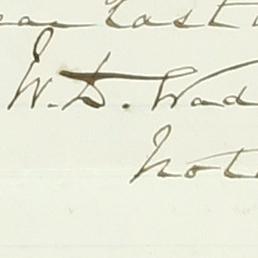 East
W. D. Wad
Not